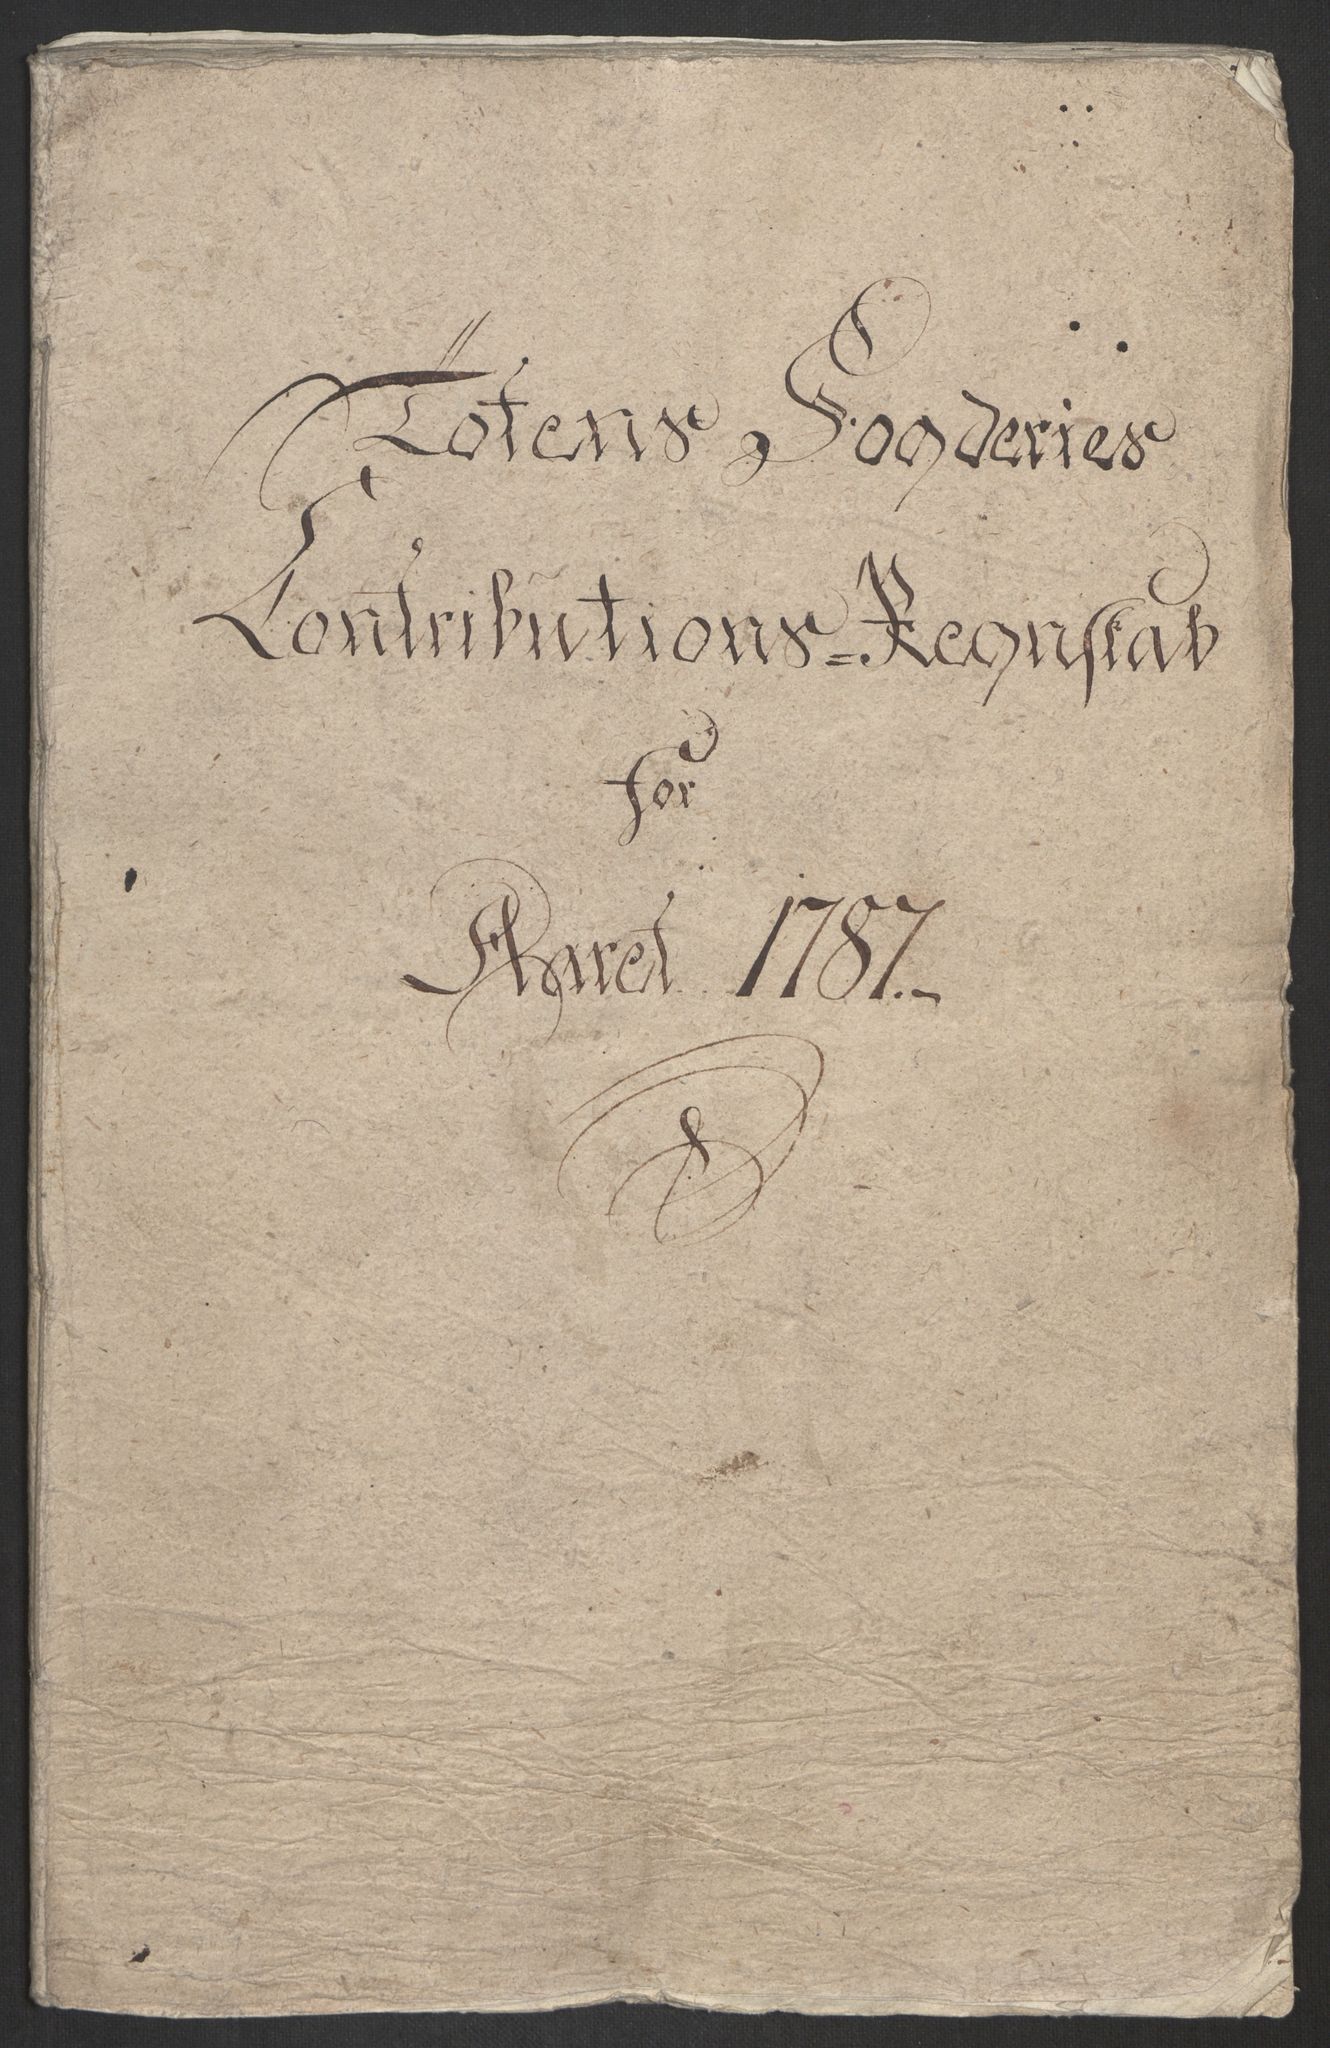 Totens Fogderies
Contributions=Regnskab
for
Aaret 1787.